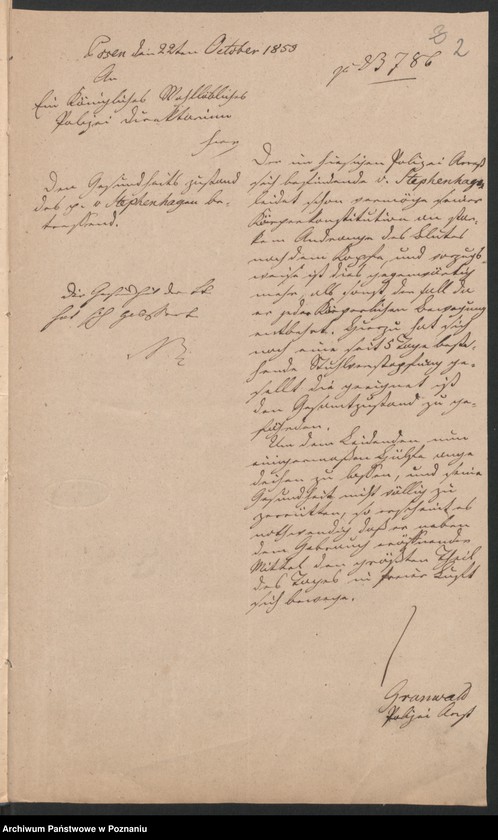 8 2
Posen den 22ten October 1853
pr 786
An
Ein Königliches Wohllöbliches
Polizei Direktorium
hier
Den Gesundheits zustand
des p. v Stephenhagen be-
treffend.
Der im hiesigen Polizei Arrest
sich befindende v. Stephenhagen
leidet schon vermöge seiner
Körperkonstitution an star-
kem Andrange des Blutes
nach dem Kopfe und vorzugs-
weise ist dies gegenwärtig
mehr als sonst der fall da
er jeder Körperlichen Bewegung
entbehrt. Hierzu hat sich
noch eine seit 5 Tage beste-
hende Stuhlverstopfung ge-
sellt die geeignet ist
den Gesamtzustand zu ge-
fährden.
Um dem Leidenden nun
einigermaßen Hülfe ange
deihen zu lassen, und seine
Gesundheit nicht völlig zu
zerrütten, so erscheint es
nothwendig daß er neben
dem Gebrauch eröffnender
Mittel den größten Theil
des Tages in freier Luft
sich bewege.
Granwald
Polizei Arzt
Archiwum Państwowe w Poznaniu